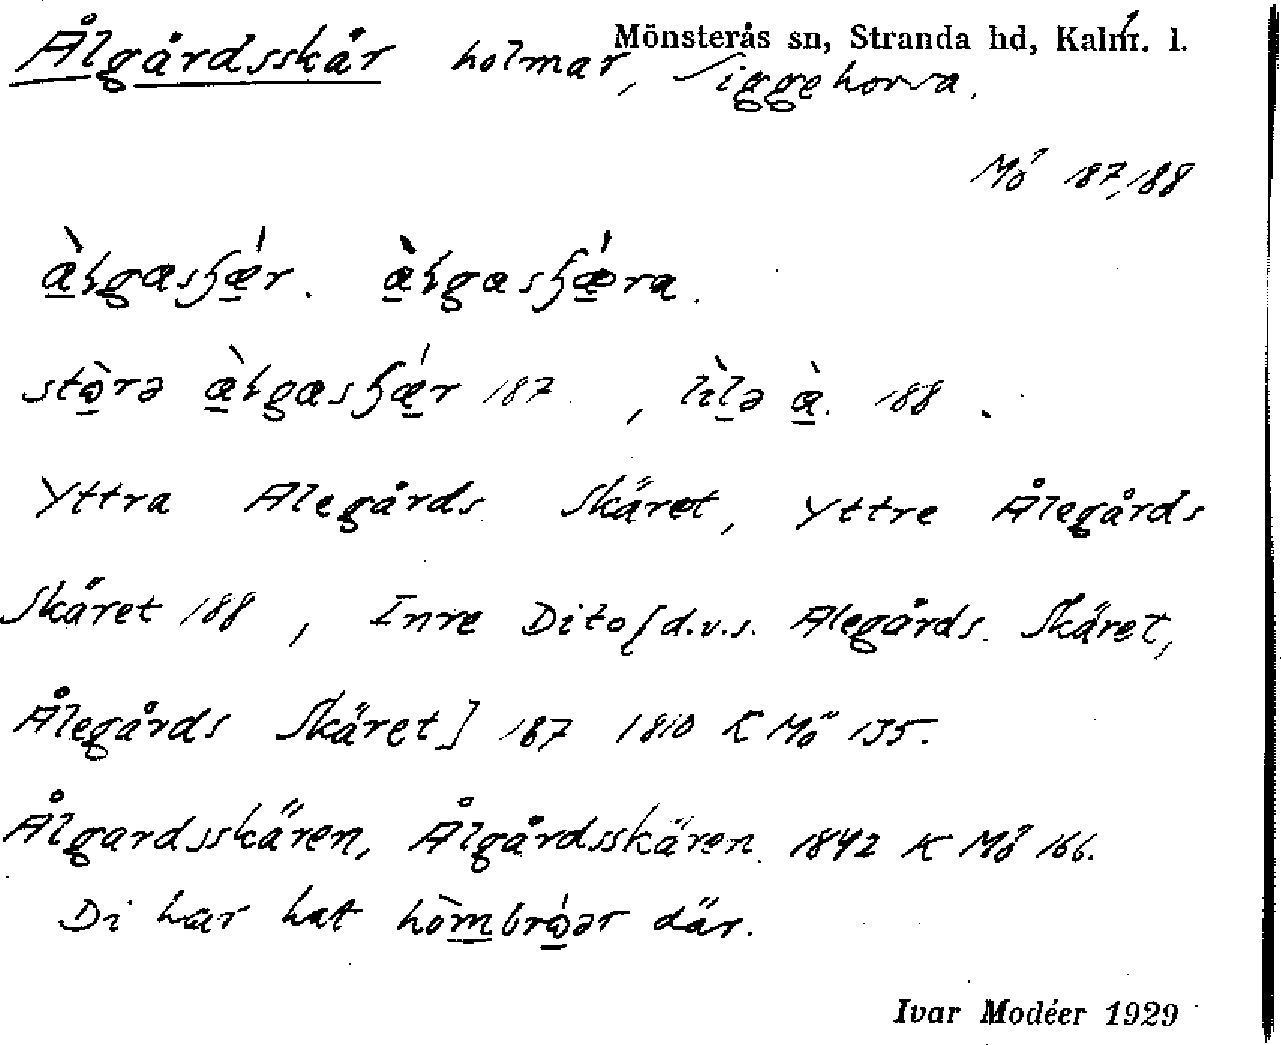 Mönsterås sn, Stranda hd, Kalm. l.
Ålgårdsskär holmar, Siggehorva.
Mö 187, 188
stòrə 187, lìlə à. 188.
Yttra Alegårds Skäret, Yttre Ålegårds
Skäret 188, Inre Dito [d.v.s. Alegårds Skäret,
Ålegårds Skäret] 187 1810 K Mö 135.
Ålgardsskären, Ålgårdsskären 1842 K Mö 166.
Di har hat där.
Ivar Modéer 1929